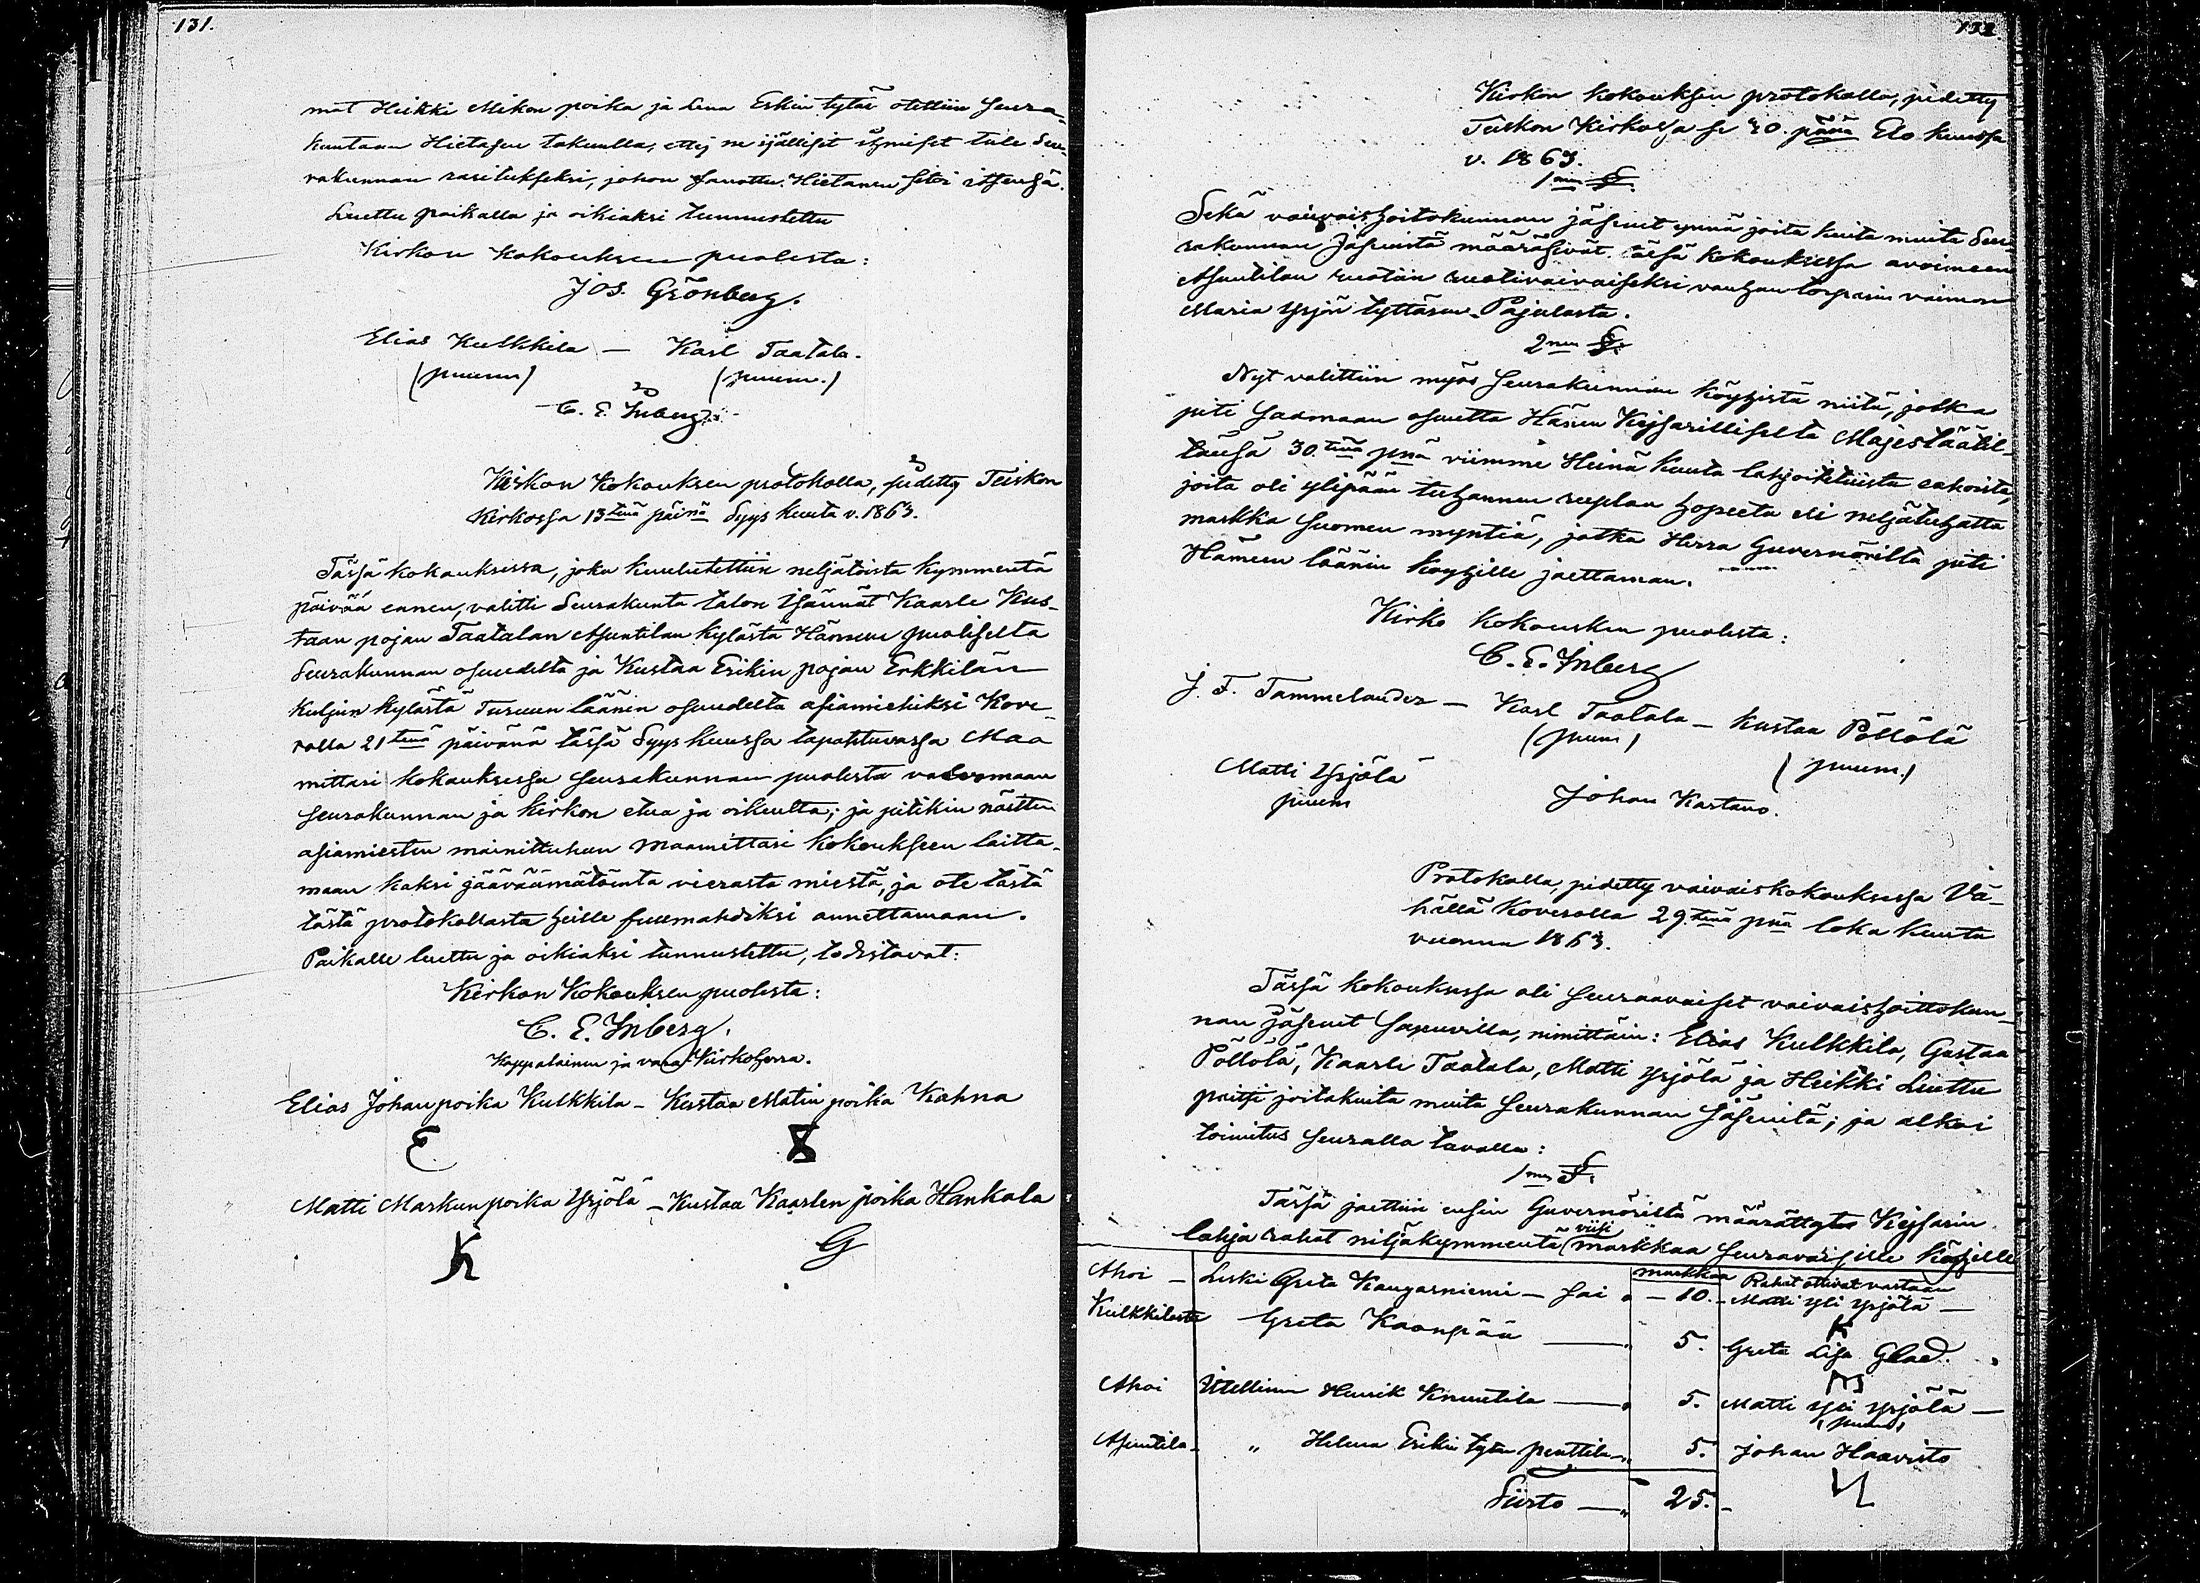 131.
mat Heikki Mikon poika ja Lena Eskin tytär otettiin Seura-
kuntaan Hietasen takuulla, ettej ne ijälliset ihmiset tule Seu-
rakunnan rasitukseksi, johon Hietanen setoi itsensä.
Luettu paikalla ja oikiaksi tunnustettu
Kirkon Kokouksen puolesta:
Jos. Grönberg.
Elias Kulkkila — Karl Taatala.
(puum) (puum.)
C. E. Inberg
Kirkon Kokouksen protokolla, pidetty Teiskon
Kirkossa 13tenä päinä Syys kuuta v. 1863.
Tässä kokouksessa, joka kuulutettiin neljätoista kymmentä
päivää ennen, valitti Seurakunta talon Isännät Kaarle Kus-
taan pojan Taatalan Asuntilan kylästä Hämeen puoliselta
Seurakunnan osuudelta ja Kustaa Erikin pojan Erkkilän
Kuljun kylästä Turuun läänin osuudelta asiamiehiksi Kove-
rolla 21tenä päivänä tässä Syys kuussa tapahtuvassa Maa
mittari kokouksessa seurakunnan puolesta valvomaan
seurakunnan ja kirkon etua ja oikeutta; ja pitikin näitten
asiamiesten mainittuhun Maamittari kokoukseen laitta-
maan kaksi jäävämätöintä vierasta miestä, ja ote tästä
tästä protokollasta heille fullmahdiksi annettamaan.
Paikalle luettu ja oikiaksi tunnustettu, todistavat:
Kirkon Kokouksen puolesta:
C. E. Inberg.
Kappalainen ja vara Kirkoherra.
Elias Johanpoika Kulkkila – Kustaa Matin poika Kahna
E
Matti Markunpoika Yrjölä – Kustaa Kaarlen poika Hankala
K G
132.
Kirkon kokouksen protokolla, pidetty
Teiskon Kirkossa se 30. pänä Elo kuussa
v. 1863.
1men §.
Sekä vaivaishoitokunnan jäsenet ynnä joita kuita muita Seu-
rakunnan Jäsenistä määräsivät tässä kokouksessa avoimeen
Asuntilan ruotiin ruotivaivaiseksi vanhan torparin vaimon
Maria Yrjön tyttären Pajulasta.
2nen §.
Nyt valittiin myös seurakunnan köyhistä niitä, jotka
piti saamaan osuutta Hänen Kejsarilliselta Majestäätil-
tänsä 30.tenä pnä viimme Heinä kuuta lahjoitetuista rahoista,
joita oli ylipään tuhannen ruplan hopeeta eli neljätuhatta
markka Suomen myntiä, jotka Herra Guvernöriltä piti
Hämeen läänin köyhille jaettaman.
Kirko Kokousken puolesta:
C. E. Inberg
J. F. Tammelander – Karl Taatala – Kustaa Pöllölä
(puum) (puum.)
Matti Yrjölä
puum
Johan Kartano.
Protokolla, pidetty vaivaiskokouksessa Vä-
hällä Koverolla 29.tenä pnä loka kuuta
vuonna 1863.
Tässä kokouksessa oli seuraavaiset vaivaishoittokun-
nan jäsenet sapuvilla, nimittäin: Elias Kulkkila, Gustaa
Pöllölä, Kaarle Taatala, Matti Yrjölä ja Heikki Liuttu
paitsi joitakuita muita seurakunnan Jäsenitä; ja alkoi
toimitus seuralla tavalla:
1men §.
Tässä jaettiin ensin Guvernöriltä määrättytä Kejsarin
lahja rahat neljäkymmentä viisi markkaa seuravaisille köyhille
markkaa Rahat ottivat vastaan
Ahoi – Leski Greta Kangasniemi – sai „ – 10. – Matti Yli Yrjölä –
K
Kulkkilasta Greta Kaanpää — „ 5. Greta Lisa Glad.
Ahoi Itellinen Henrik Knuutila — „ 5. Matti yli yrjölä –
(puum)
Asuntila – „ Helena Erikin tytär penttilä – „ 5. Johan Haavisto
Siirto — „ 25. –